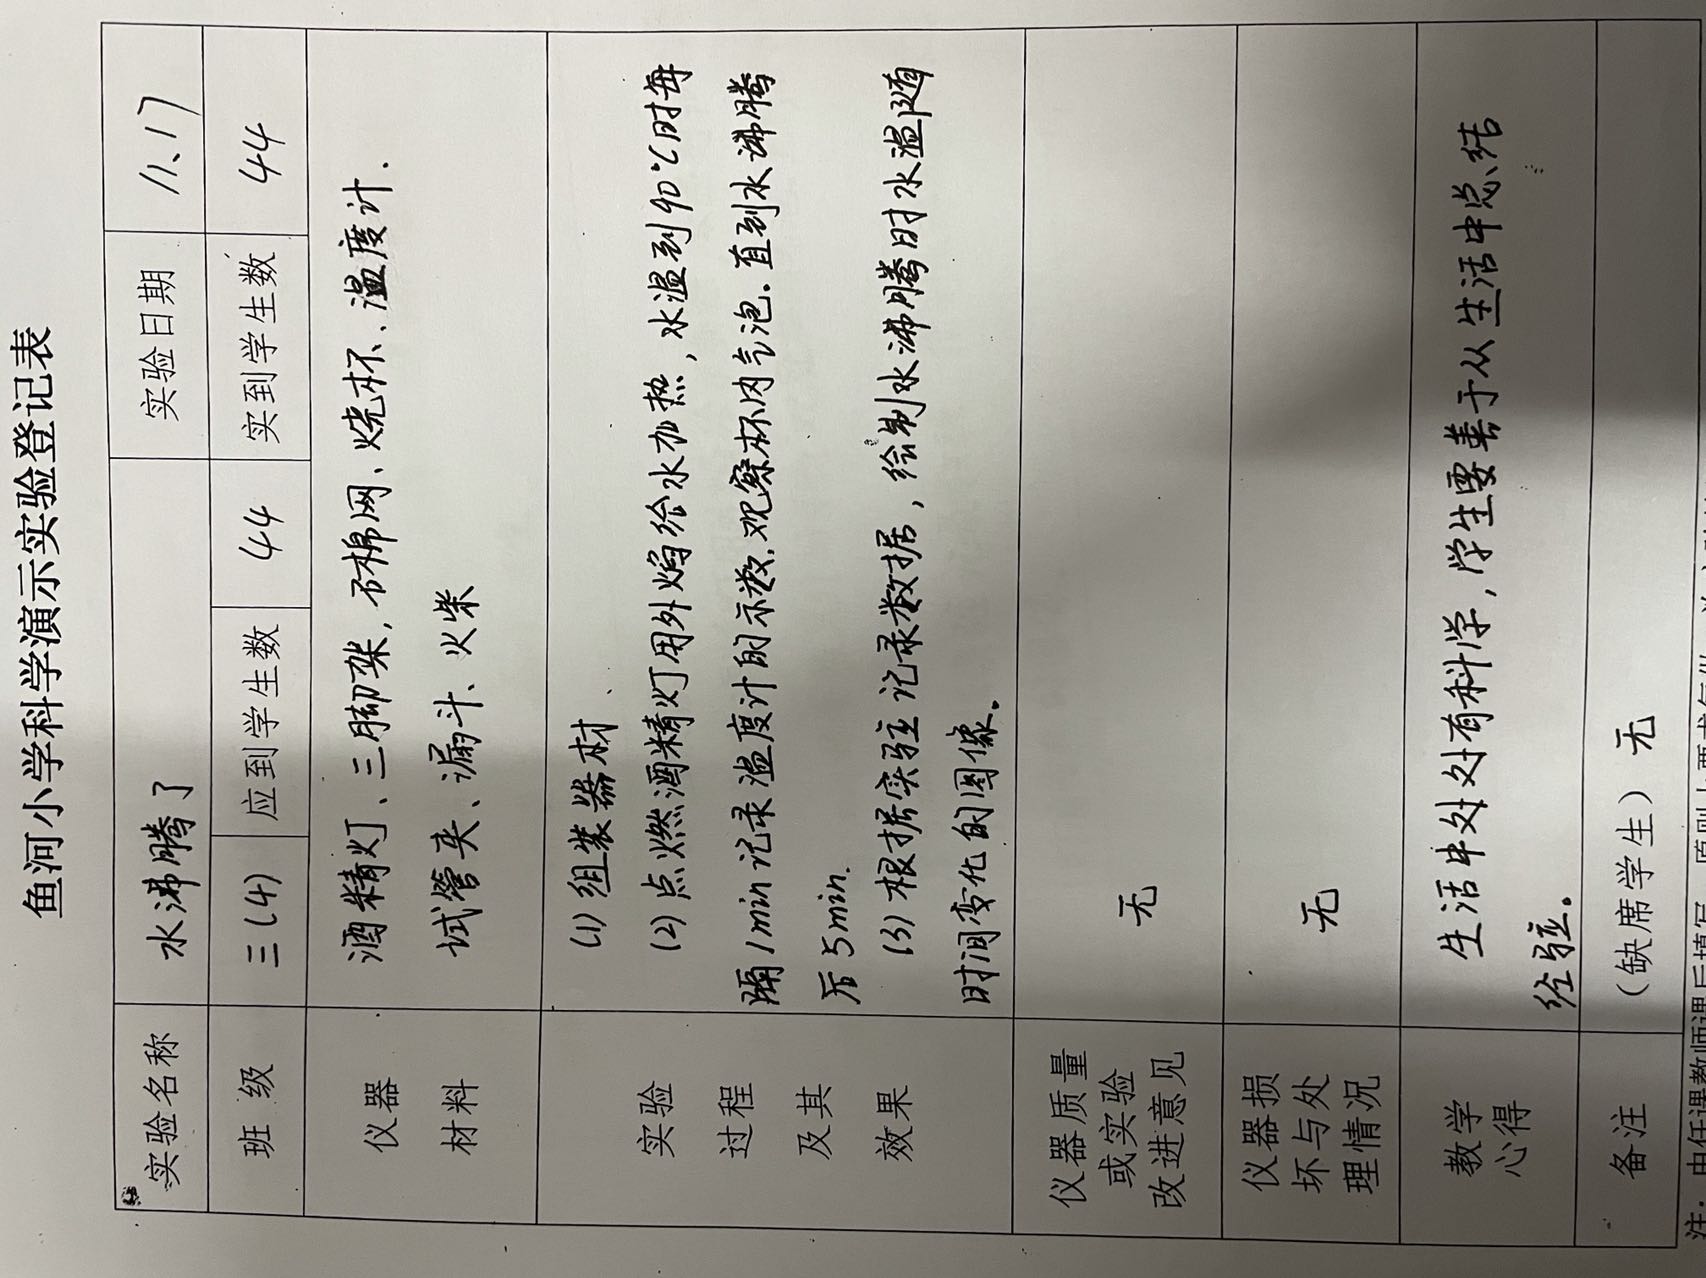 鱼河小学科学演示实验登记表
实验名称 水沸腾了 实验日期 11、17
班 级 三(4) 应到学生数 44 实到学生数 44
仪器
材料
酒精灯、三脚架,石棉网、烧杯、温度计.
试管夹、漏斗、火柴
实验
过程
及其
效果
(1) 组装器材、
(2) 点燃酒精灯用外焰给水加热,水温到90℃时每
隔1min记录温度计的示数.观察杯内气泡.直到水沸腾
后5min.
(3) 根据实验记录数据,绘制水沸腾时水温随
时间变化的图像。
仪器质量
或实验
改进意见
无
仪器损
坏与处
理情况
无
教学
心得
生活中处处有科学,学生要善于从生活中总结
经验。
备注 (缺席学生) 无
注:由任课教师课后填写